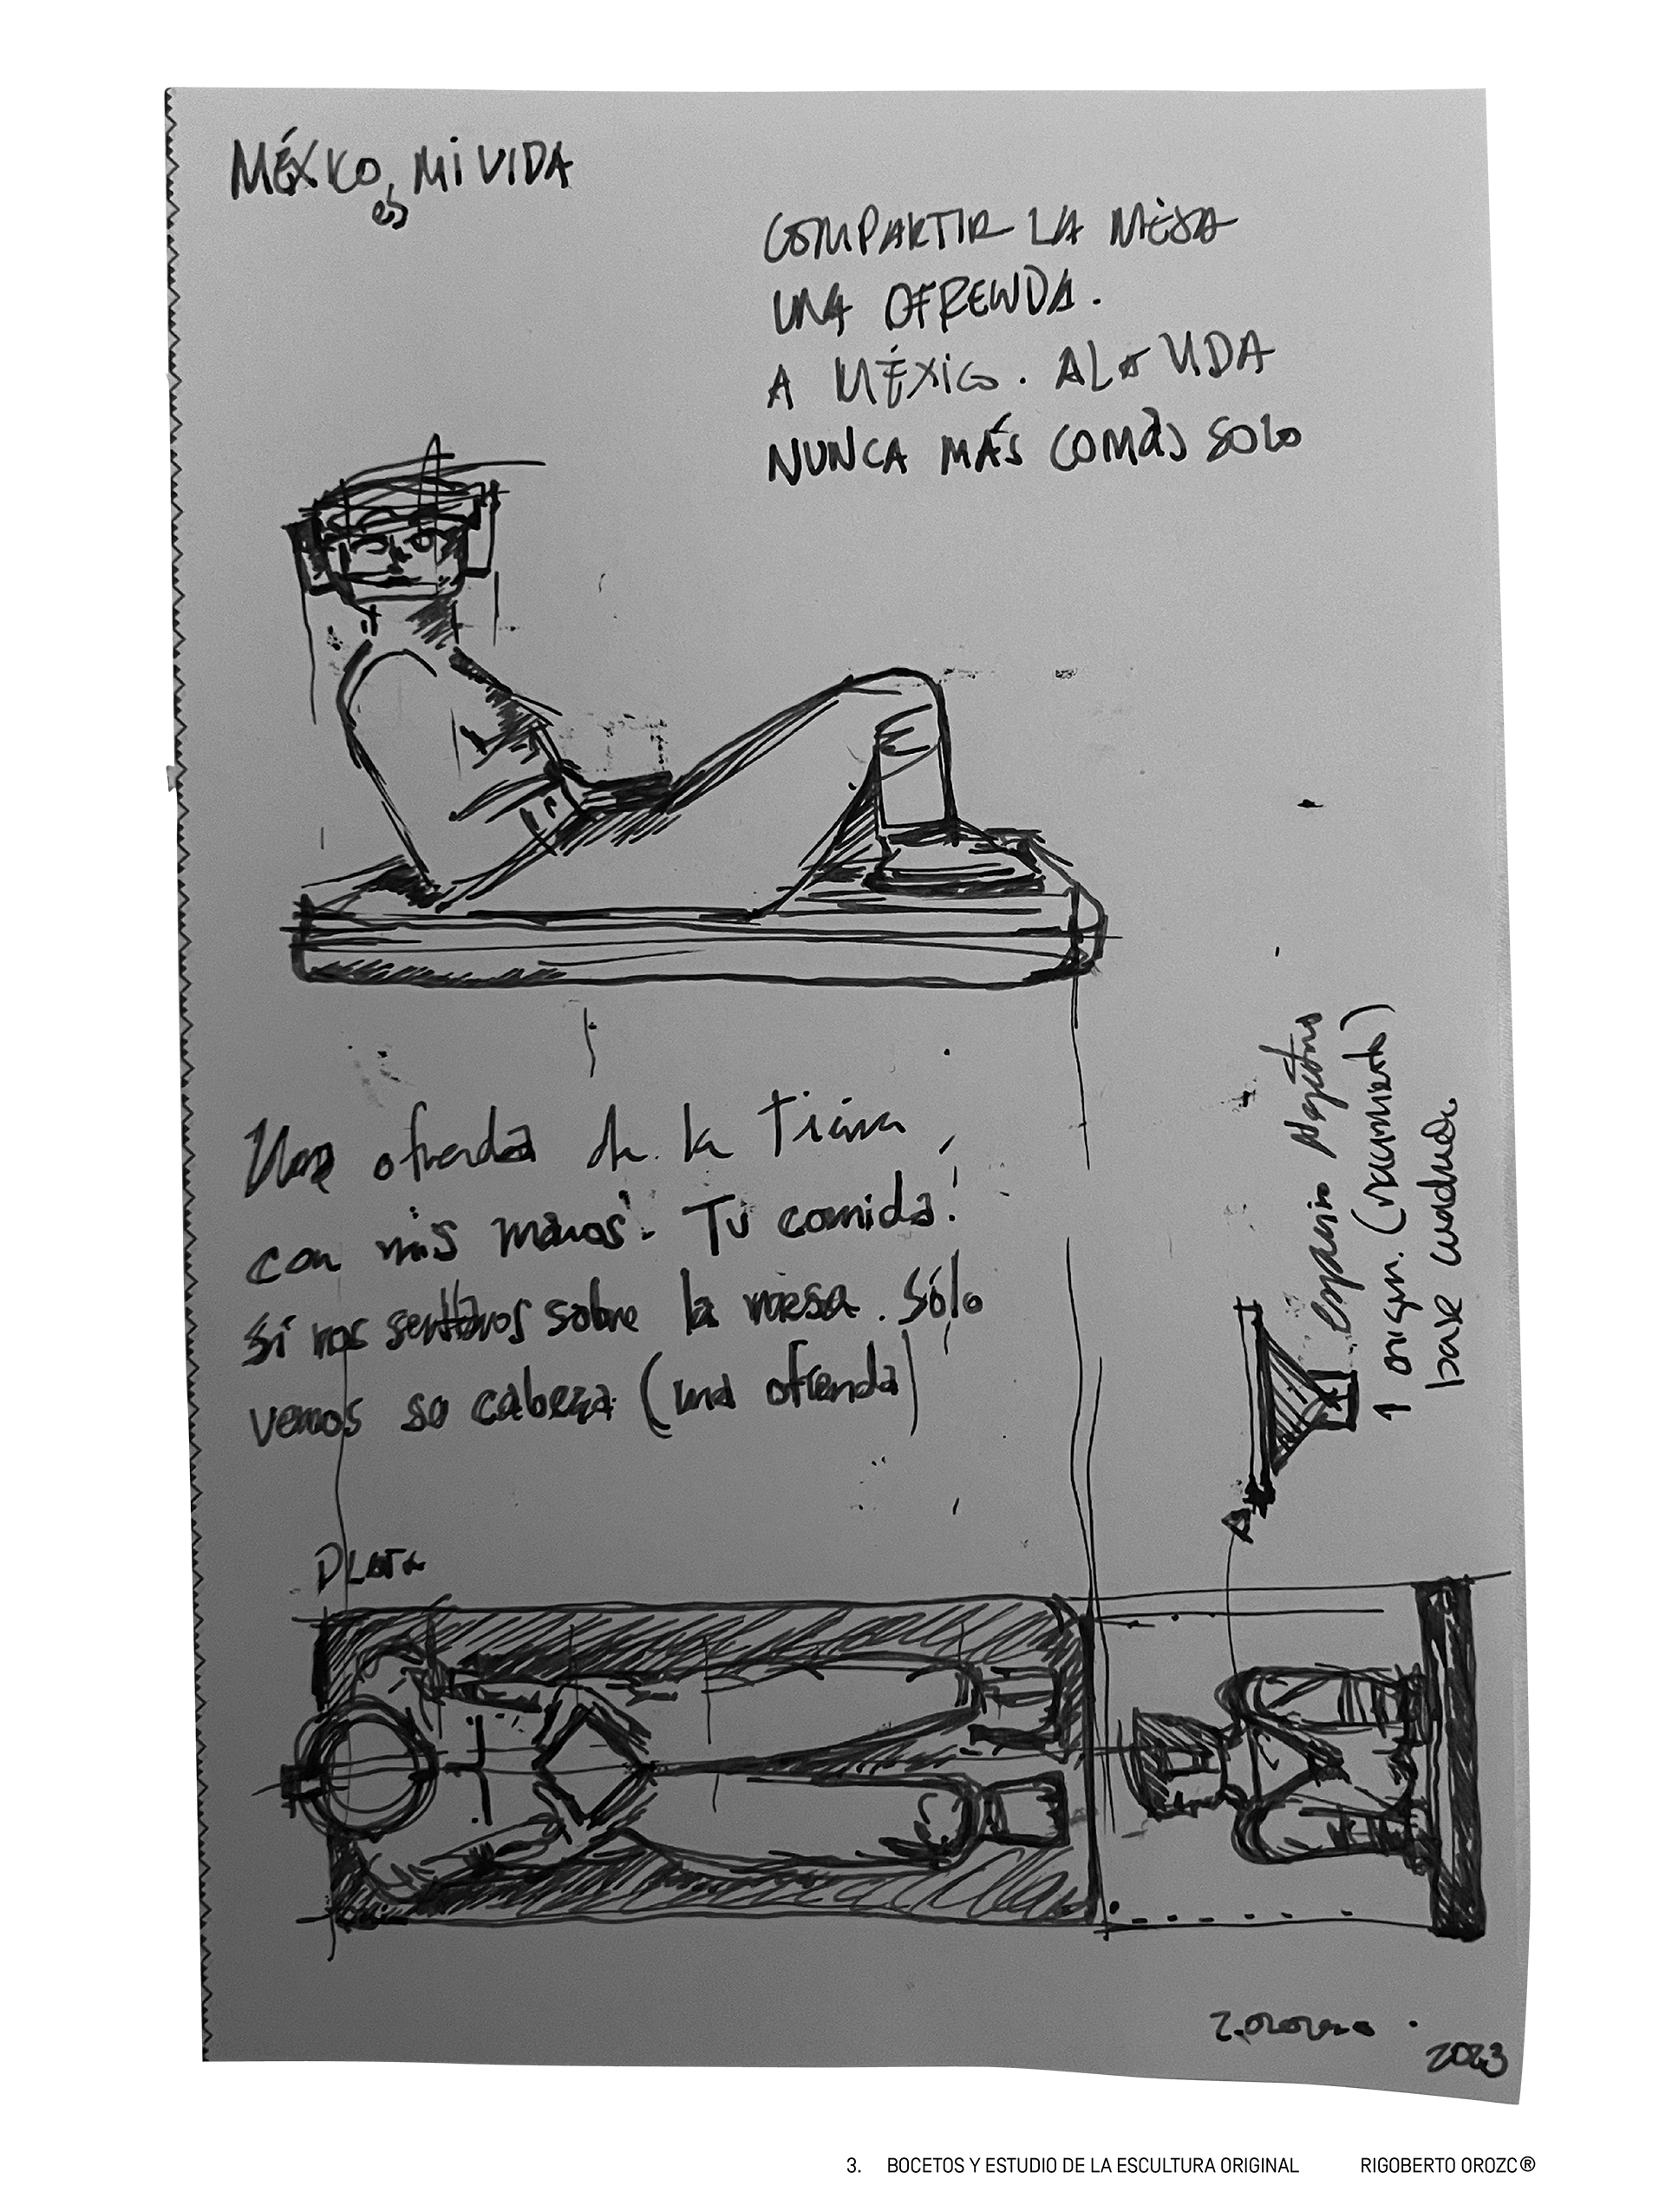 MÉXICO, MI VIDA
es
COMPARTIR LA MESA
UNA OFRENDA.
A MÉXICO. A LA VIDA
NUNCA MÁS COMAS SOLO
Una ofrenda de la Tierra,
con mis manos. Tu comida!
Si nos sentamos sobre la mesa. Sólo
vemos su cabeza (una ofrenda)
espacio negativo
1 origen. (nacimiento)
base cuadrada.
2023
3. BOCETOS Y ESTUDIO DE LA ESCULTURA ORIGINAL RIGOBERTO OROZC®